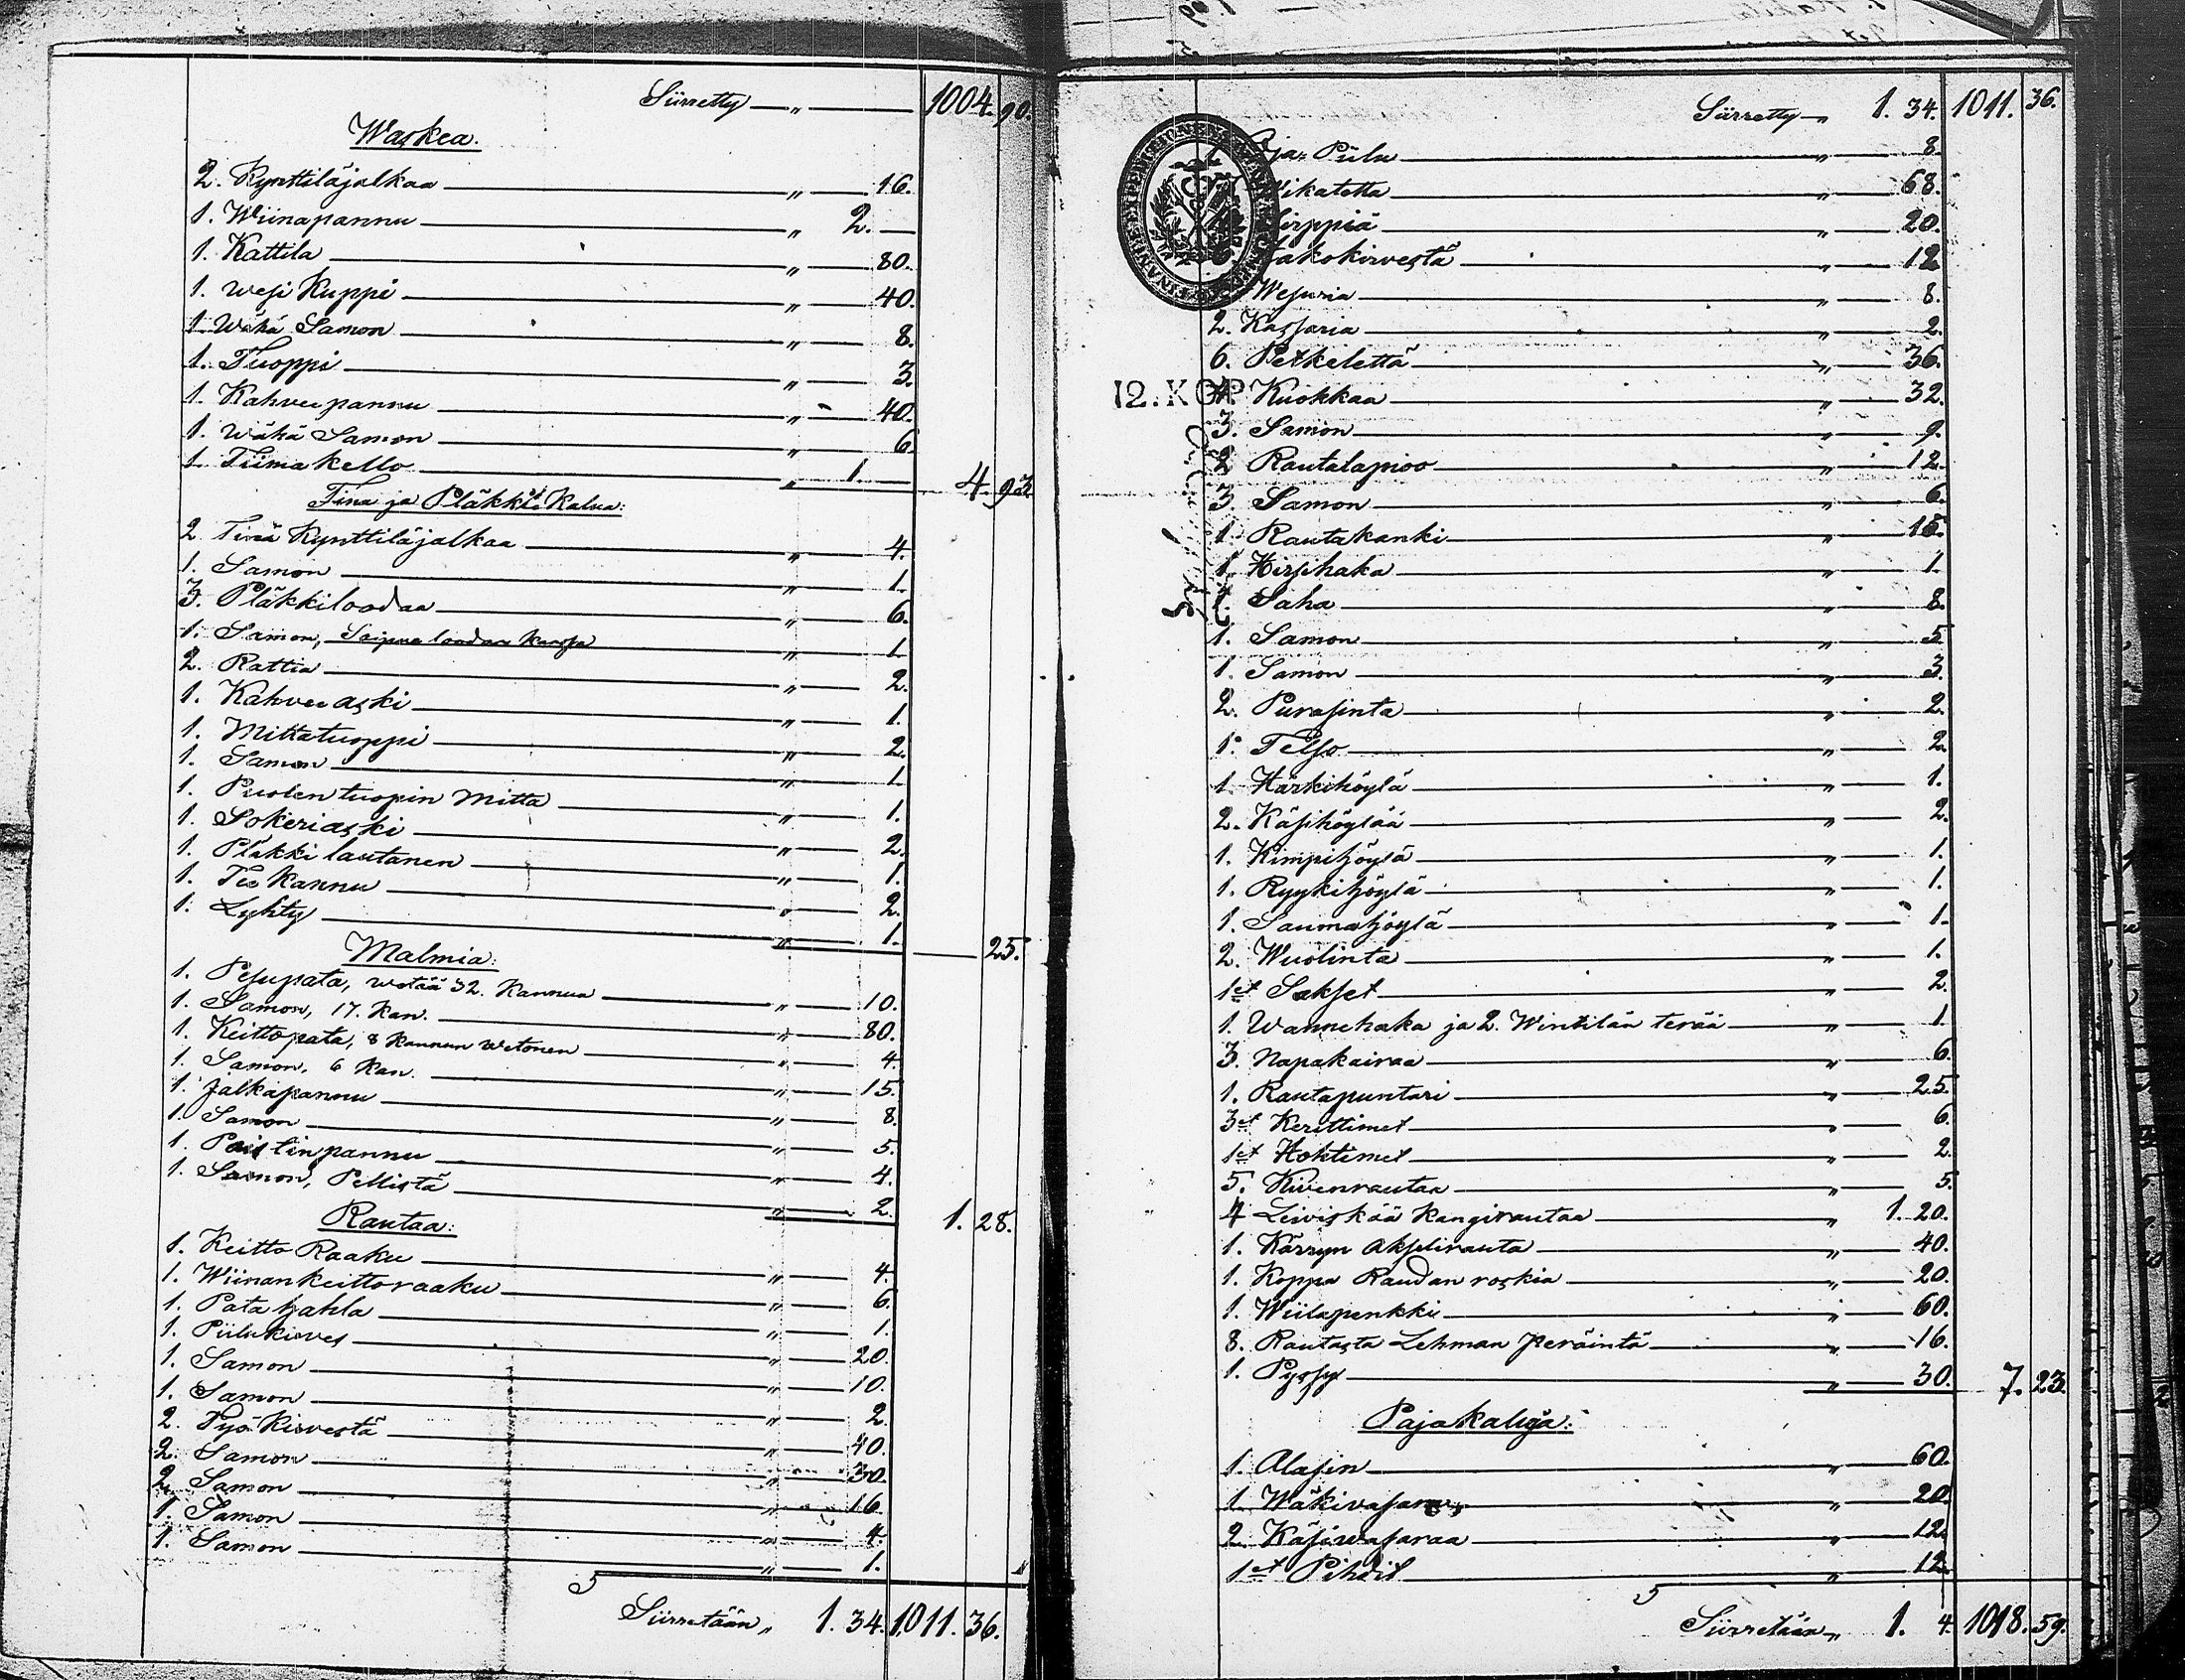 Siirretty „ 1004. 90.
Waskea.
2. Kynttiläjalkaa „ 16.
1. Wiinapannu „ 2. —
1. Kattila „ 80.
1. Wesi Kuppi „ 40.
1. Wähä Samon „ 8.
1. Tuoppi „ 3.
1. Kahvee pannu „ 40.
1. Wähä Samon „ 6.
1. Tiima kello „ 1. — 4. 93.
Tina ja Pläkki Kalua:
2 Tina Kynttiläjalkaa „ 4.
1. Samon „ 1.
3. Pläkkiloodaa „ 6.
1. Samon, Saipua loodan kanssa „ 1
2. Rattia „ 2.
1. Kahvee aski „ 1.
1. Mittatuoppi „ 2.
1. Samon „ 1
1. Puolen tuopin Mitta „ 1.
1. Sokeriaski „ 2.
1. Pläkki lautanen „ 1.
1. Tee Kannu „ 2.
1. Lyhty „ 1. 25.
Malmia:
1. Pesupata, wetää 32. Kannua „ 10.
1. Samon, 17. Kan. „ 80.
1. Keittopata, 8 Kannun Wetonen „ 4.
1. Samon, 6 Kan. „ 15.
1. Jalkapannu „ 8.
1. Samon „ 5.
1. Paistinpannu „ 4.
1. Samon, Pellistä „ 2. 1. 28.
Rautaa:
1. Keitto Raaku „ 4.
1. Wiinankeittoraaku „ 6.
1. Pata hahla „ 1.
1. Piilukirves „ 20.
1. Samon „ 10.
1. Samon „ 2.
2. Työ Kirvestä „ 40.
2. Samon „ 30.
2. Samon „ 16.
1. Samon „ 4.
1. Samon „ 1.
Siirretään „ 1. 34. 1,011. 36.
Siirretty „ 1. 34. 1011. 36.
Piilu „ 8.
ikatetta „ 68.
irppiä „ 20.
akokirvestä „ 12
Wesuria „ 8.
2. Kassaria „ 2.
6. Petkelettä „ 36.
12.KOP
4. Kuokkaa „ 32.
3. Samon „ 9.
2 Rautalapioo „ 12.
3. Samon „ 6.
1. Rautakanki „ 15.
1. Hirsihaka „ 1.
1. Saha „ 8.
1. Samon „ 5
1. Samon „ 3.
2. Purasinta „ 2.
1. Telso „ 2.
1. Härkihöylä „ 1.
2. Käsihöylää „ 2.
1. Kimpihöylä „ 1.
1. Ryykihöylä „ 1.
1. Saumahöylä „ 1.
2. Wuolinta „ 1.
1et Sakset „ 2.
1. Wannehaka ja 2. Wintilän terää „ 1
3. Napakairaa „ 6.
1. Rautapuntari „ 25.
3et Kerittimet „ 6.
1et Hohtimet „ 2.
5. Kivenrautaa „ 5.
4 Leiviskää Kangirautaa „ 1. 20.
1. Kärryn Akselirauta „ 40.
1. Koppa Raudan roskia „ 20.
1. Wiilapenkki „ 60.
8. Rautasta Lehman peräintä „ 16.
1. Pyssy „ 30. 7. 23.
Pajakaluja:
1. Alasin „ 60.
1. Wäkivasara „ 20.
2. Käsiwasaraa „ 12.
1et Pihdit „ 12.
Siirretään „ 1. 4. 1018. 59.